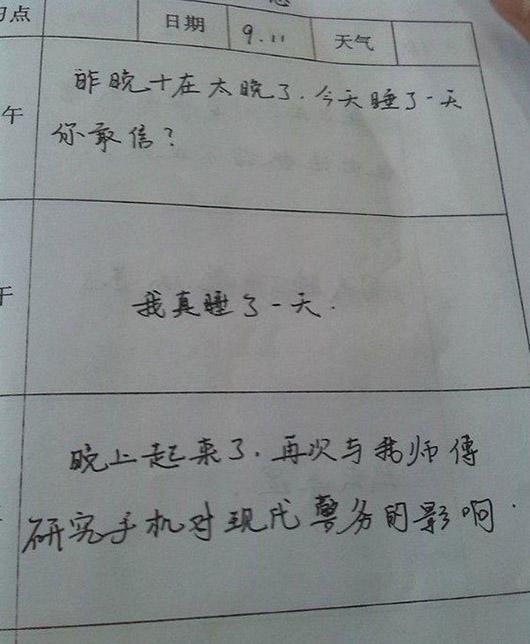 日期 9.11 天气
午
昨晚十在太晚了.今天睡了一天
你敢信?
午
我真睡了一天.
晚上起来了.再次与我师傅
研究手机对现代警务的影响.